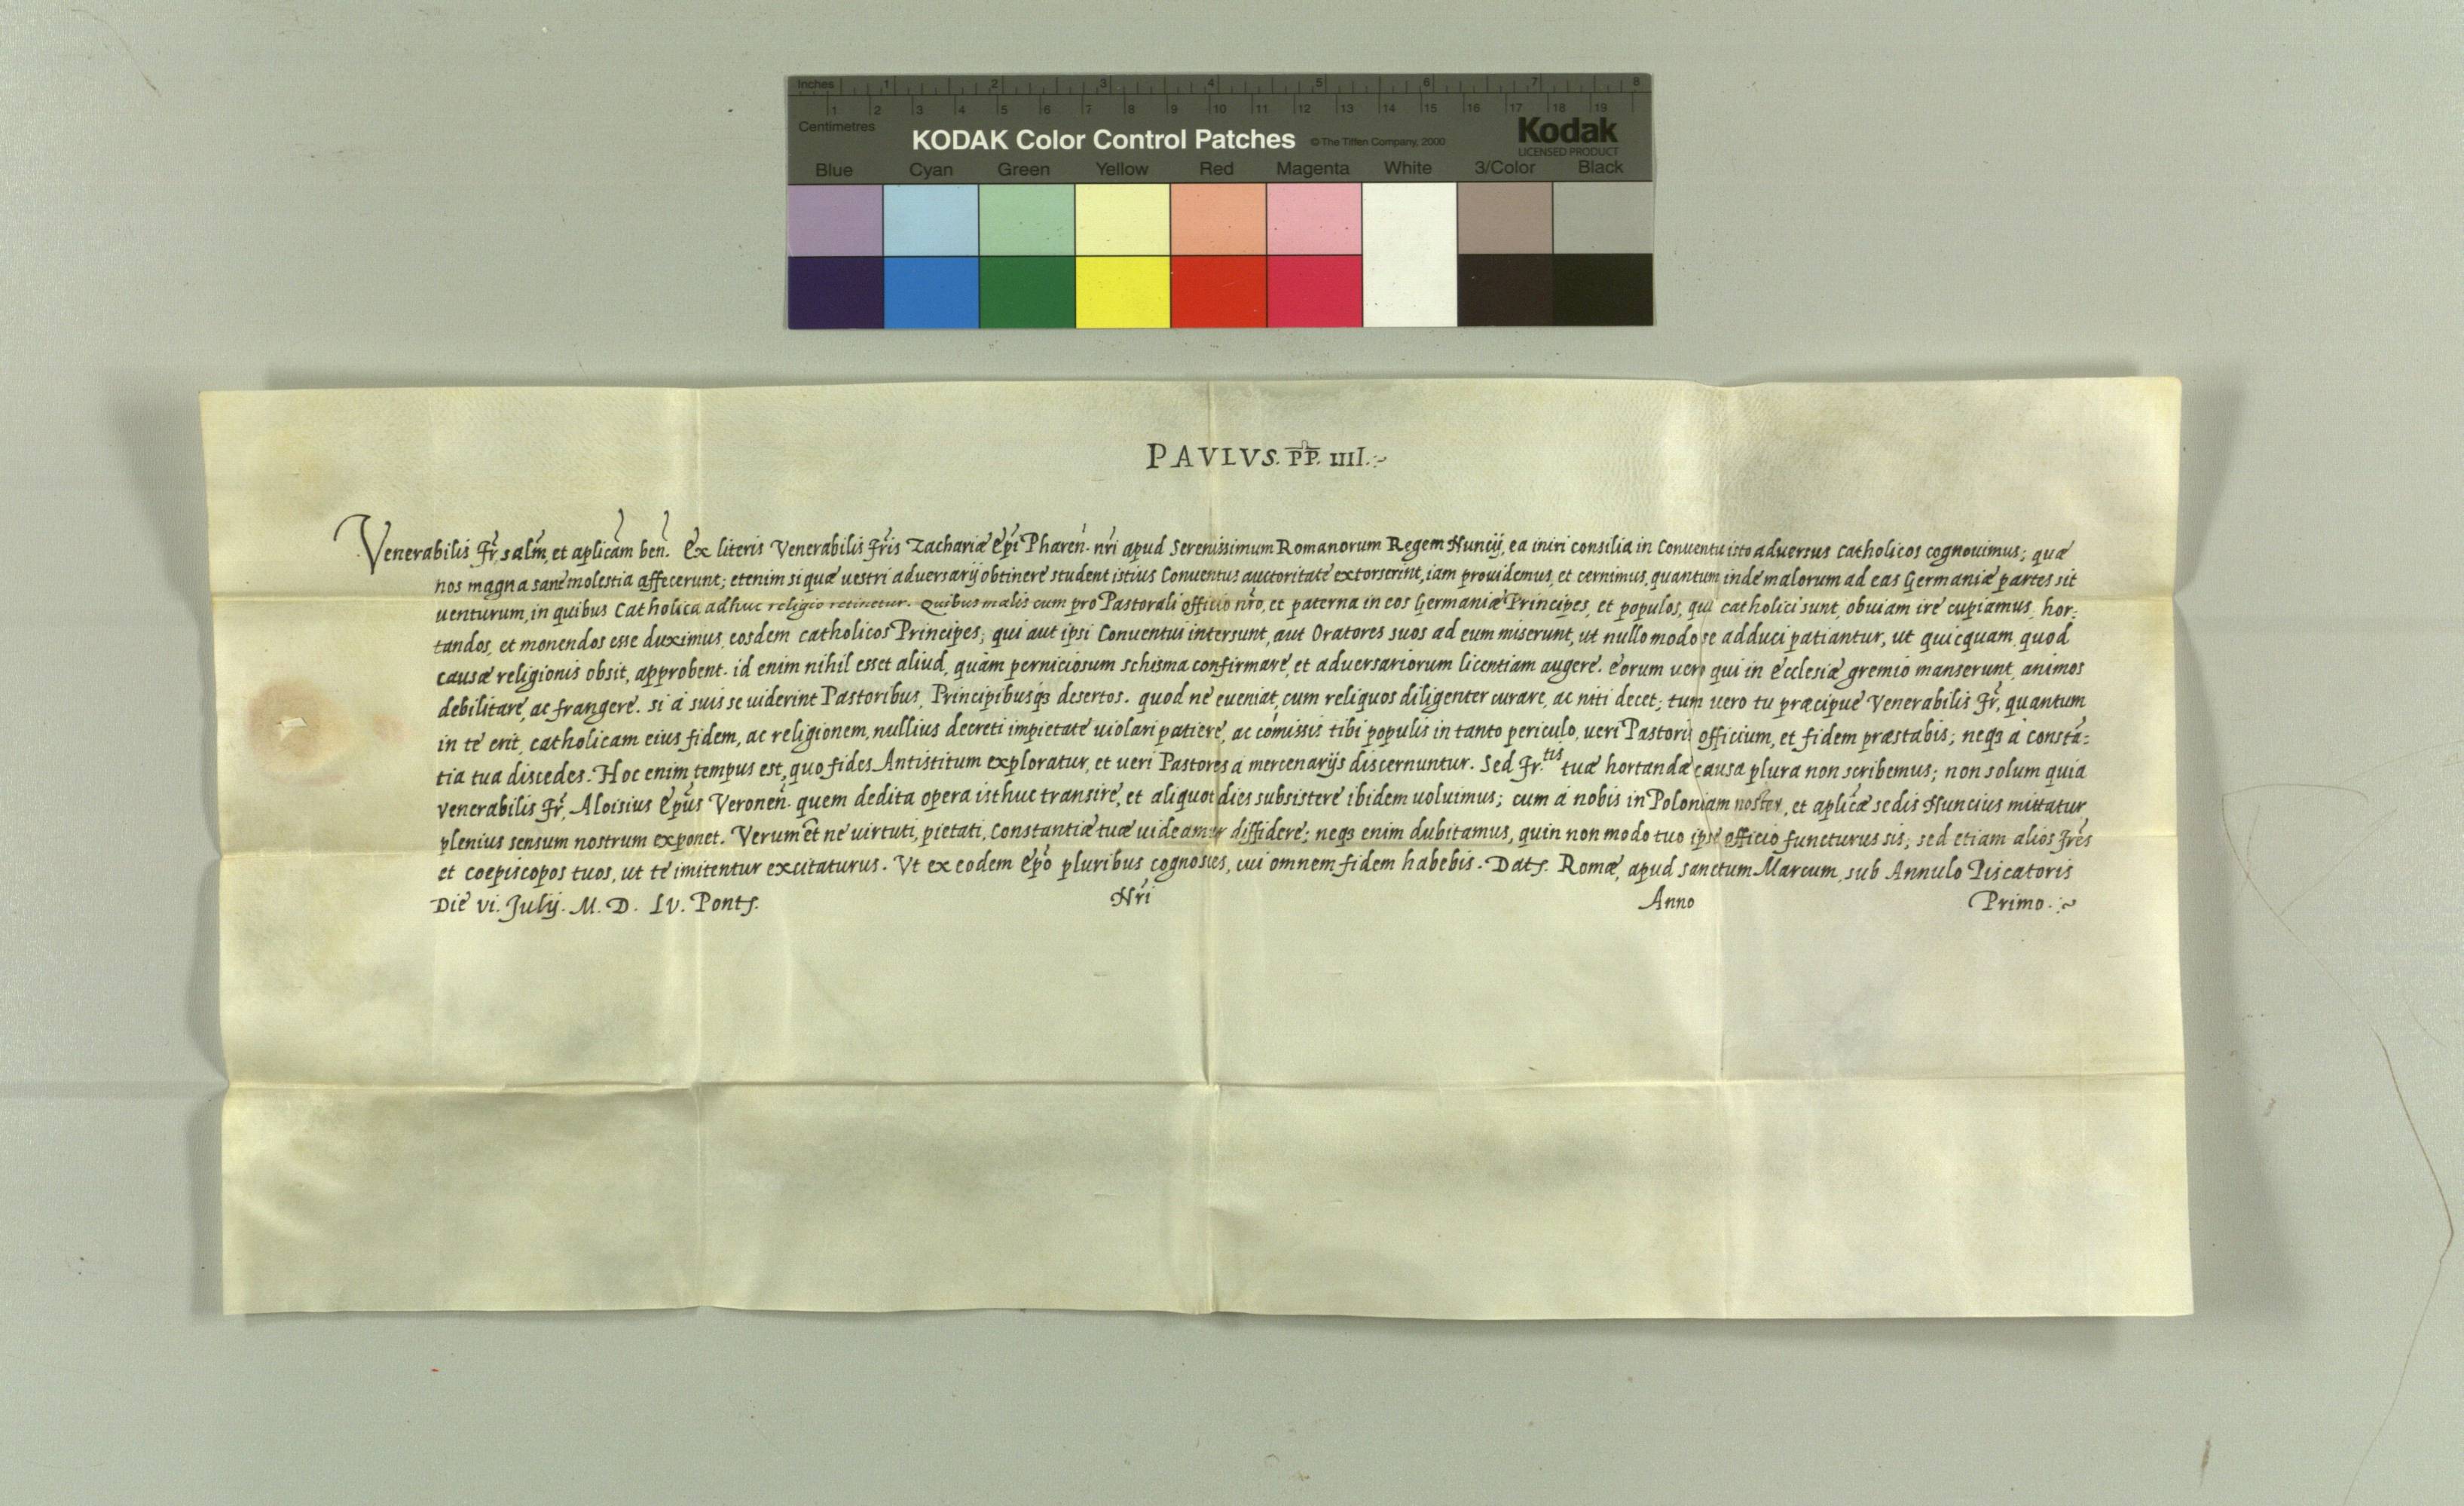 Inches 1 2 3 4 5 6 7 8
1 2 3 4 5 6 7 8 9 10 11 12 13 14 15 16 17 18 19
Centimetres
KODAK Color Control Patches © The Tiffen Company, 2000 Kodak
LICENSED PRODUCT
Blue Cyan Green Yellow Red Magenta White 3/Color Black
PAVLVS. PP. IIII.
Venerabilis fr̃, salm̃, et aplicam̃ beñ. Ex literis Venerabilis fr̃is Zachariæ Ep̃i Pharen̄. nr̃i apud Serenissimum Romanorum Regem Nuncij, ea iniri consilia in Conuentu isto aduersus catholicos cognouimus; quæ
nos magna sane molestia affecerunt; etenim si quæ uestri aduersarij obtinere student istius Conuentus auctoritate extorserint, iam prouidemus, et cernimus, quantum inde malorum ad eas Germaniæ partes sit
uenturum, in quibus Catholica adhuc religio retinetur. Quibus malis cum pro Pastorali officio nr̃o, et paterna in eos Germaniæ Principes, et populos, qui catholici sunt, obuiam ire cupiamus, hor:
tandos, et monendos esse duximus, eosdem catholicos Principes; qui aut ipsi Conuentui intersunt, aut Oratores suos ad eum miserunt, ut nullo modo se adduci patiantur, ut quicquam, quod
causæ religionis obsit, approbent. id enim nihil esset aliud, quàm perniciosum schisma confirmare, et aduersariorum licentiam augere. Eorum uero qui in Ecclesiæ gremio manserunt, animos
debilitare, ac frangere. si à suis se uiderint Pastoribus, Principibusq3 desertos. quod ne eueniat, cum reliquos diligenter curare, ac niti decet; tum uero tu præcipue Venerabilis fr̃, quantum
in te erit, catholicam eius fidem, ac religionem, nullius decreti impietate uiolari patiere, ac com̃issis tibi populis in tanto periculo, ueri Pastoris officium, et fidem præstabis; neq3 à constã:
tia tua discedes. Hoc enim tempus est, quo fides Antistitum exploratur, et ueri Pastores à mercenarijs discernuntur. Sed fr.tis tuæ hortandæ causa plura non scribemus; non solum quia
venerabilis fr̃, Aloisius Ep̃us Veronen̄. quem dedita opera isthuc transire, et aliquot dies subsistere ibidem uoluimus; cum à nobis in Poloniam noster, et aplic̃æ sedis Nuncius mittatur,
plenius sensum nostrum exponet. Verum et̃ ne uirtuti, pietati, Constantiæ tuæ uideamur diffidere; neq3 enim dubitamus, quin non modo tuo ipse officio functurus sis; sed etiam alios fr̃es
et coepiscopos tuos, ut te imitentur excitaturus. Vt ex eodem Ep̃o pluribus cognosces, cui omnem fidem habebis. Dat. Romæ, apud sanctum Marcum, sub Annulo Piscatoris
Die vi. Julij. M. D. LV. Pont. Nr̃i Anno Primo.